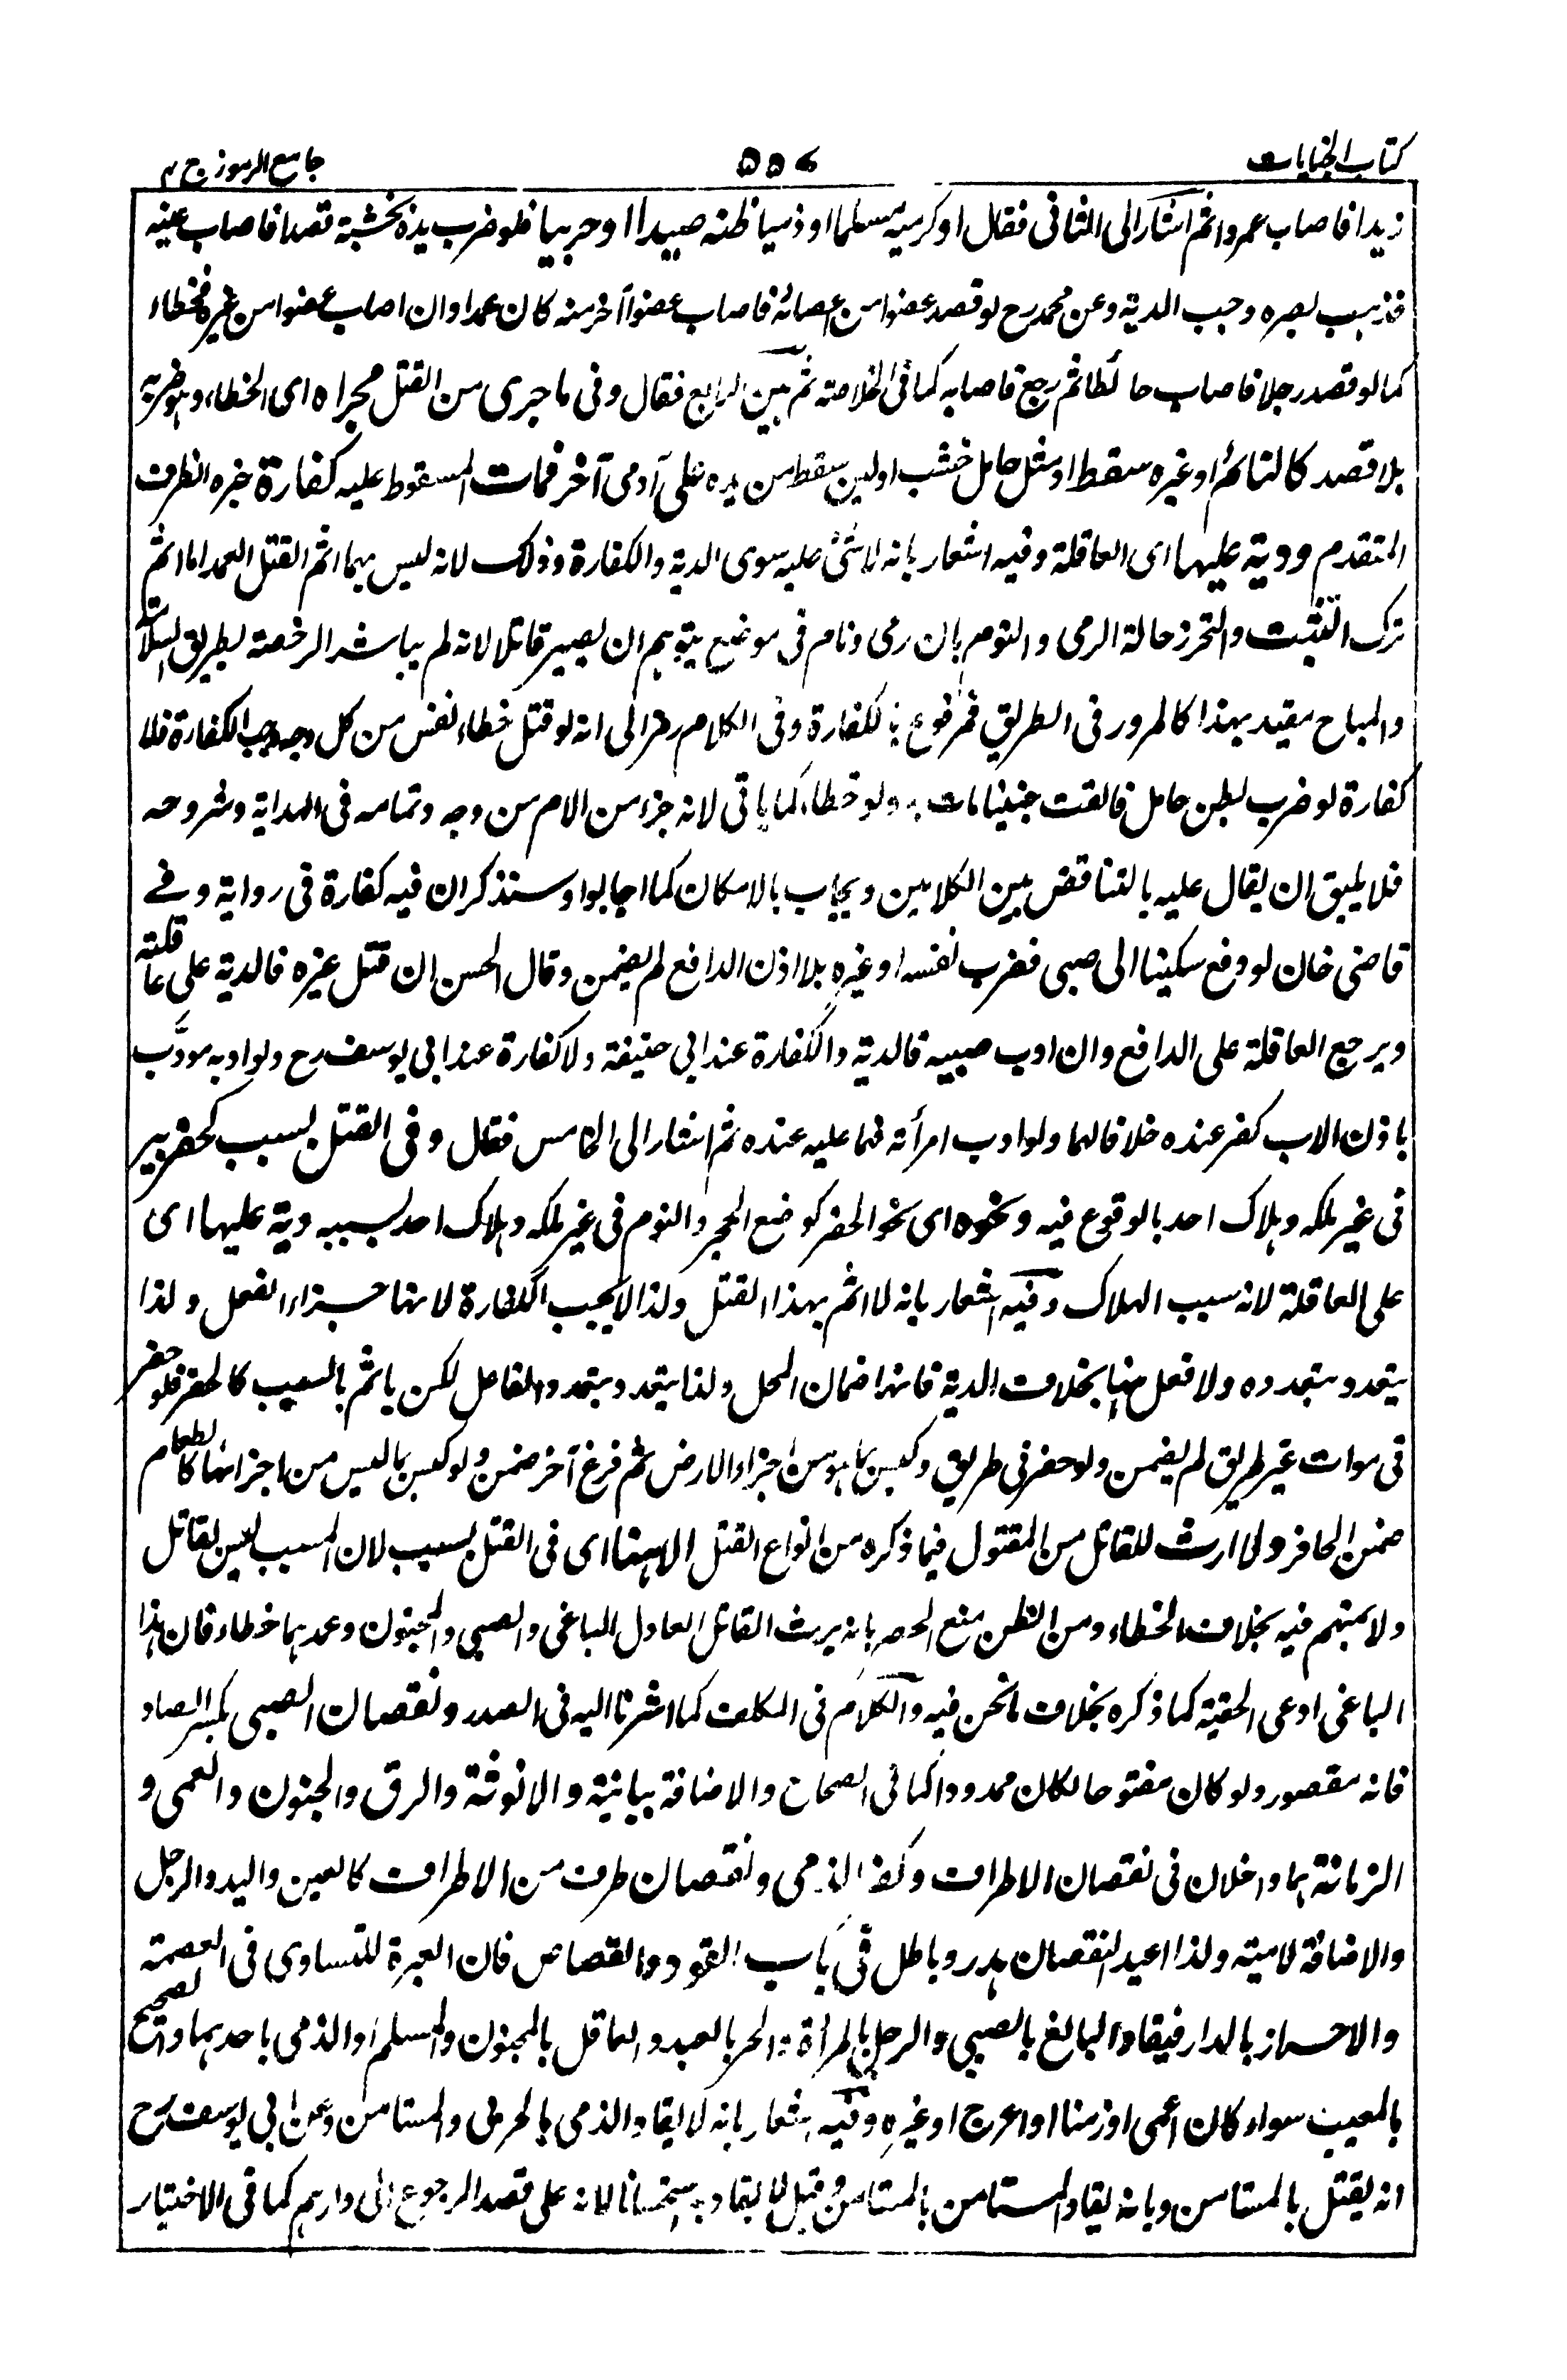 كتاب الجنايات
٥٥٦
جامع الرموز ج ٢
زيدا فاصاب عمروا ثم اشار الى الثانى فقال او كرميه مسلما او ذميا ظنه صيدا او حربيا فلو ضرب يده بخشبة قصدا فاصاب عينه
فذهب بصره وجب الدية وعن محمد رح لو قصد عضوا من اعضائه فاصاب عضوا آخر منه كان عمدا وان اصاب عضوا من غيره فخطاء
كما لو قصد رجلا فاصاب حائطا ثم رجع فاصابه كما فى الخلاصة ثم بين الرابع فقال وفى ما جرى من القتل مجراه اى الخطاء وهو ضربه
بلا قصد كالنائم او غيره سقط او مثل حامل خشب او لبن سقط من يده على آدمى آخر فمات المسقوط عليه كفارة خبره الظرف
المتقدم ودية عليها اى العاقلة وفيه اشعار بانه لا شئ عليه سوى الدية والكفارة وذلك لانه ليس بهما اثم القتل العمد اما اثم
ترك التثبت والتحرز حالة الرمى والنوم بان رمى ونام فى موضع يتوهم ان يصير قاتلا لانه لم يباشر الرخصة بطريق السلامة
والمباح مقيد بهذا كالمرور فى الطريق فمرفوع بالكفارة وفى الكلام رمز الى انه لو قتل خطاء نفس من كل وجه وجب الكفارة فلا
كفارة لو ضرب بطن حامل فالقت جنينا مات به ولو خطاء كما ياتى لانه جزء من الام من وجه وتمامه فى الهداية وشروحه
فلا يليق ان يقال عليه بالتناقض بين الكلامين ويجاب بالامكان كما اجابوا وسنذكر ان فيه كفارة فى رواية وفى
قاضى خان لو دفع سكينا الى صبى فضرب نفسه او غيره بلا اذن الدافع لم يضمن وقال الحسن ان قتل غيره فالدية على عاقلته
ويرجع العاقلة على الدافع وان ادب صبيه فالدية والكفارة عند ابى حنيفة ولا كفارة عند ابى يوسف رح ولو ادبه مودَّب
باذن الاب كفر عنده خلافا لهما ولو ادب امرأته فهما عليه عنده ثم اشار الى الخامس فقال وفى القتل بسبب كحفر بير
فى غير ملكه وهلاك احد بالوقوع فيه ونحوه اى نحو الحفر كوضع الحجر والنوم فى غير ملكه وهلاك احد بسببه دية عليها اى
على العاقلة لانه سبب الهلاك وفيه اشعار بانه لا اثم بهذا القتل ولذا لا يجب الكفارة لانها جزاء الفعل ولذا
يتعدد بتعدده ولا فعل منها بخلاف الدية فانها ضمان المحل ولذا يتعدد بتعدد الفاعل لكن ياثم بالسبب كالحفر فلو حفر
فى موات غير طريق لم يضمن ولو حفر فى طريق وكبس بما هو من اجزاء الارض ثم فرغ آخر ضمن ولو كبس بما ليس من اجزائها كالطعام
ضمن الحافر ولا ارث للقاتل من المقتول فيما ذكره من انواع القتل الا هنا اى فى القتل بسبب لان المسبب ليس لقاتل
ولا بمتهم فيه بخلاف الخطاء ومن الظن منع الحصر بانه يرث القاتل العادل الباغى والصبى والمجنون وعمدهما خطاء فان هذا
الباغى ادعى الحقية كما ذكره بخلاف ما نحن فيه والكلام فى المكلف كما اشرنا اليه فى الصدر ونقصان الصبى بكسر الصاد
فانه مقصور ولو كان مفتوحا لكان ممدودا كما فى الصحاح والاضافة بيانية والانوثة والرق والجنون والعمى و
الزمانة هما داخلان فى نقصان الاطراف وكفر الذمى ونقصان طرف من الاطراف كالعين واليد والرجل
والاضافة لامية ولذا اعيد النقصان هدر وباطل فى باب القود والقصاص فان العبرة للتساوى فى العصمة
والاحراز بالدار فيقاد البالغ بالصبى والرجل بالمرأة والحر بالعبد والعاقل بالمجنون والمسلم او الذمى باحدهما والصحيح
بالمعيب سواء كان اعمى او زمنا او اعرج او غيره وفيه اشعار بانه لا يقاد الذمى بالحربى والمستامن وعن ابى يوسف رح
انه يقتل بالمستامن وبانه يقاد المستامن بالمستامن وقيل لا يقاد به استحسانا لانه على قصد الرجوع الى دارهم كما فى الاختيار